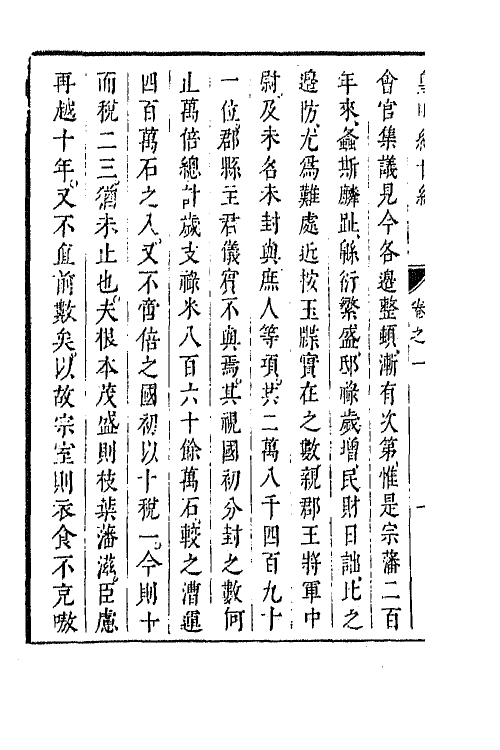 會官集議見今各邊整頓漸有次第惟是宗藩二百
年來螽斯麟趾緜衍繁盛邸祿歲增民財日詘比之
邊防尤爲難處近按玉牒實在之數親郡王將軍中
尉及未名未封與庶人等項共二萬八千四百九十
一位郡縣主君儀賓不與焉其視國初分封之數何
止萬倍總計歲支祿米八百六十餘萬石較之漕運
四百萬石之入又不啻倍之國初以十稅一今則十
而稅二三猶未止也夫根本茂盛則枝葉藩滋臣慮
再越十年又不直前數矣以故宗室則衣食不克嗷